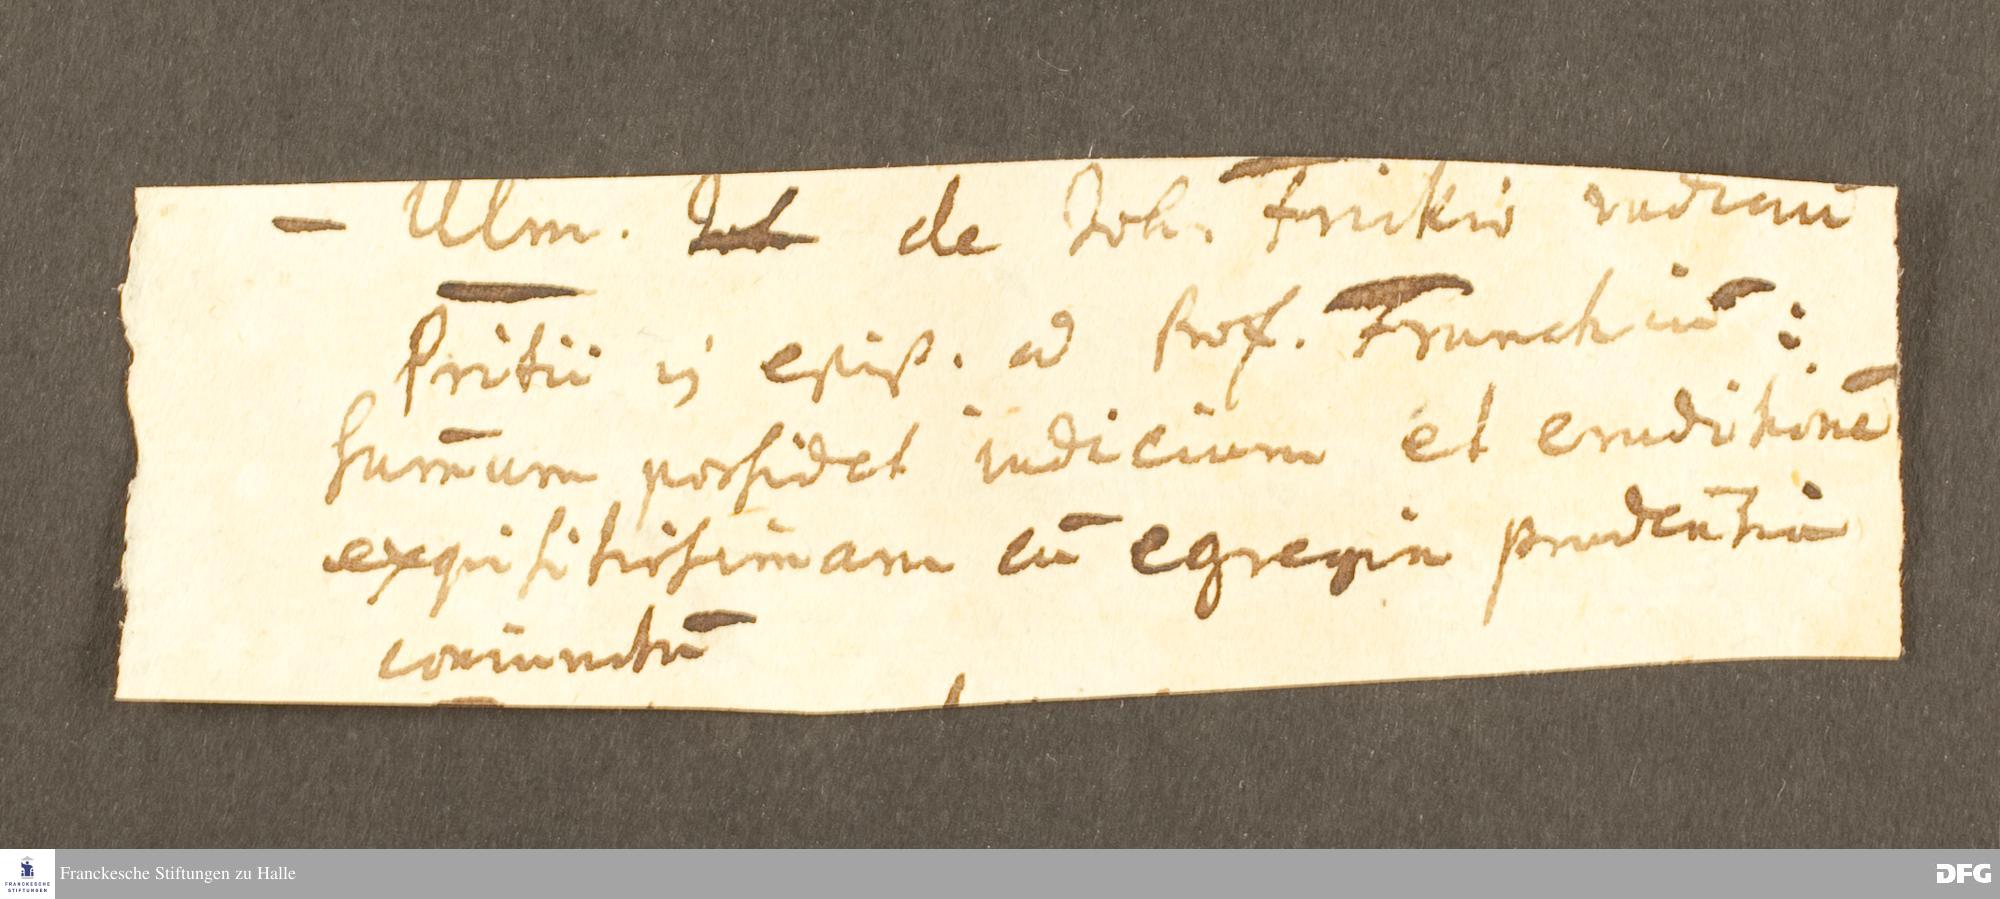 – Ulm. Joh de Joh. Frickio iudiciū
Pritii in epist. ad Prof. Franckiū:
Sum̄um possidet iudicium et eruditionē
exquisitissimam cū egregia prudentia
coniunctū
Franckesche Stiftungen zu Halle
FRANCKESCHE
STIFTUNGEN
DFG